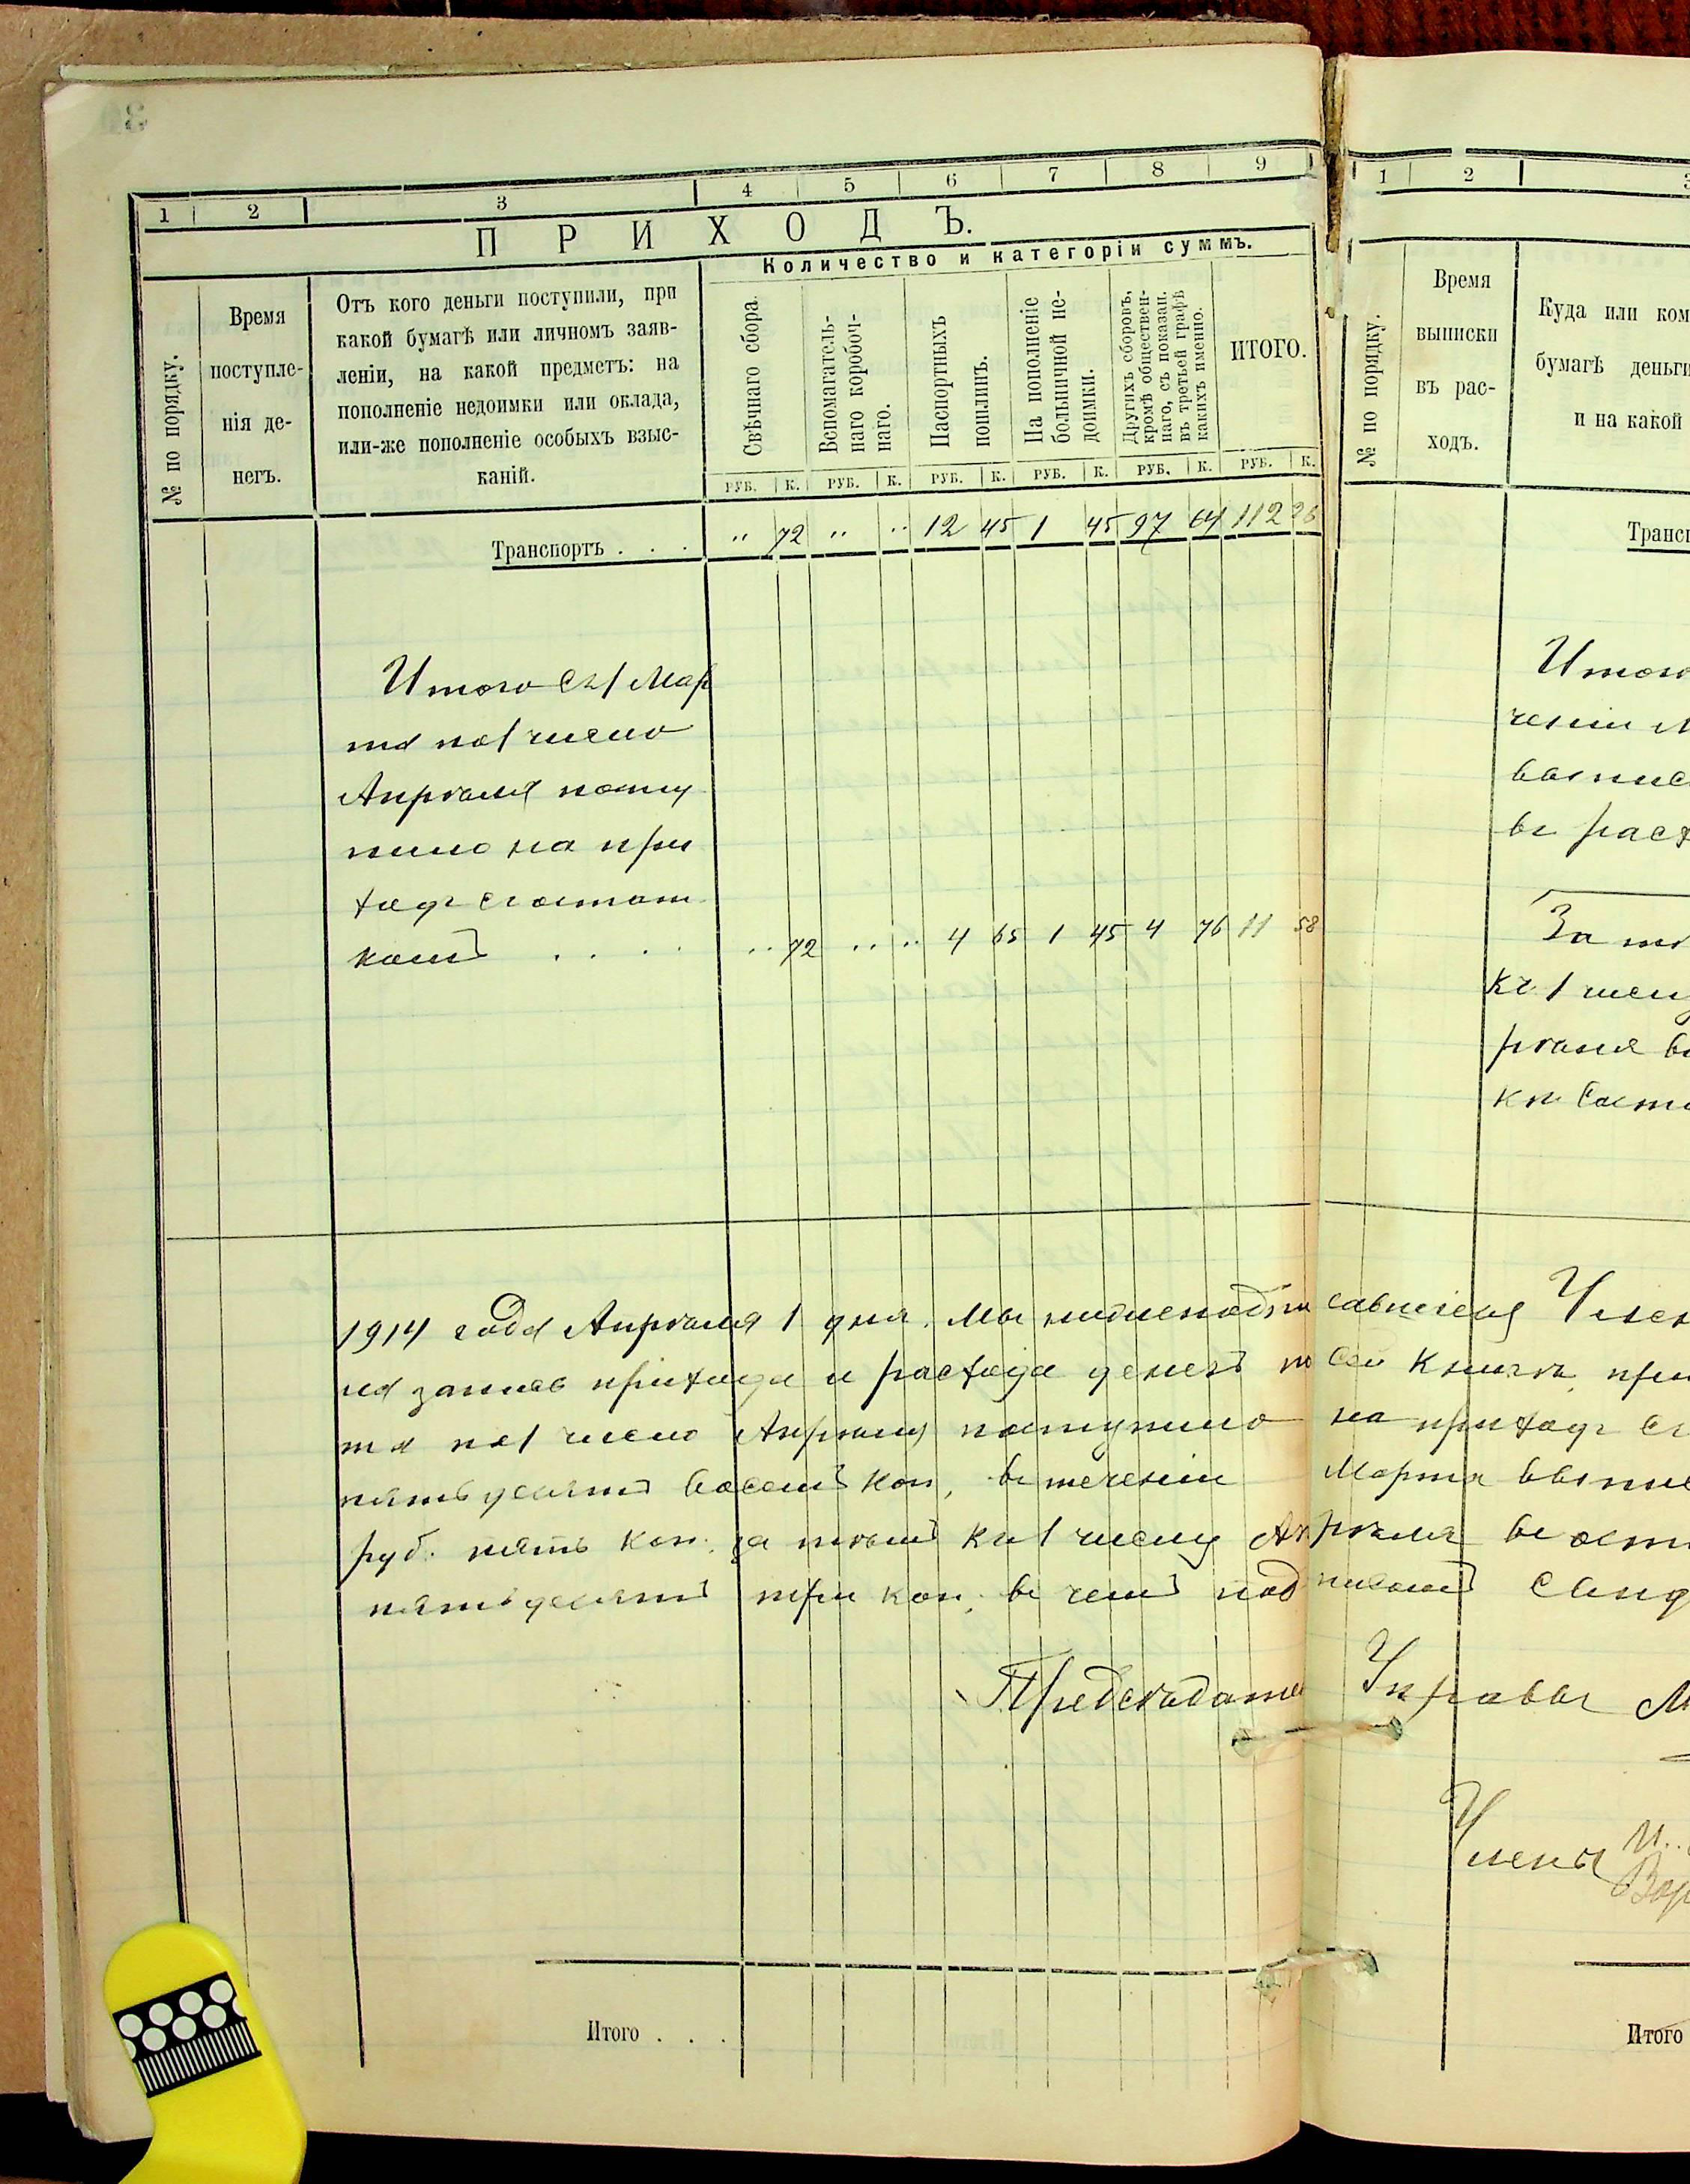 1 2 3 4 5 6 7 8 9
ПРИХОДЪ.
Количество и категоріи суммъ.
№ по порядку.
Время
поступле-
нія де-
негъ.
Отъ кого деньги поступили, при
какой бумагѣ или личномъ заяв-
леніи, на какой предметъ: на
пополненіе недоимки или оклада,
или-же пополненіе особыхъ взыс-
каній.
Свѣчнаго сбора
Вспомагатель-
наго коробоч-
наго.
Паспортныхъ
пошлинъ.
На пополненіе
больничной не-
доимки.
Другихъ сборовъ,
кромѣ обществен-
наго, съ показан.
въ третьей графѣ
какихъ именно.
ИТОГО.
РУБ. К. РУБ. К. РУБ. К. РУБ. К. РУБ. К. РУБ. К.
Транспортъ . . . „ 72 „ „ 12 45 1 45 97 64 112 26
Итого съ 1 Мар
та по 1 число
Апрѣля посту
пило на при
ходъ съ остат
комъ . . . . „ 72 „ „ 4 65 1 45 4 76 11 58
1914 года Апрѣля 1 дня. Мы нижеподпи савшіеся Член
та по 1 число Апрѣля поступило на приходъ съ
пятьдесятъ восемь коп, въ теченіи Марта выпис
руб. пять коп. за тѣмъ къ 1 числу Апрѣля въ оста
пятьдесятъ три коп. въ чемъ подписомъ свид
Предсѣдатель Управы М
Члены
Итого . . .
1 2 3
№ по порядку.
Время
выписки
въ рас-
ходъ.
Куда или ком
бумагѣ деньги
и на какой
Трансп
Итого
ченіи М
выпис
въ расх
За тѣ
къ 1 числу
рѣля въ
къ Сост
Итого